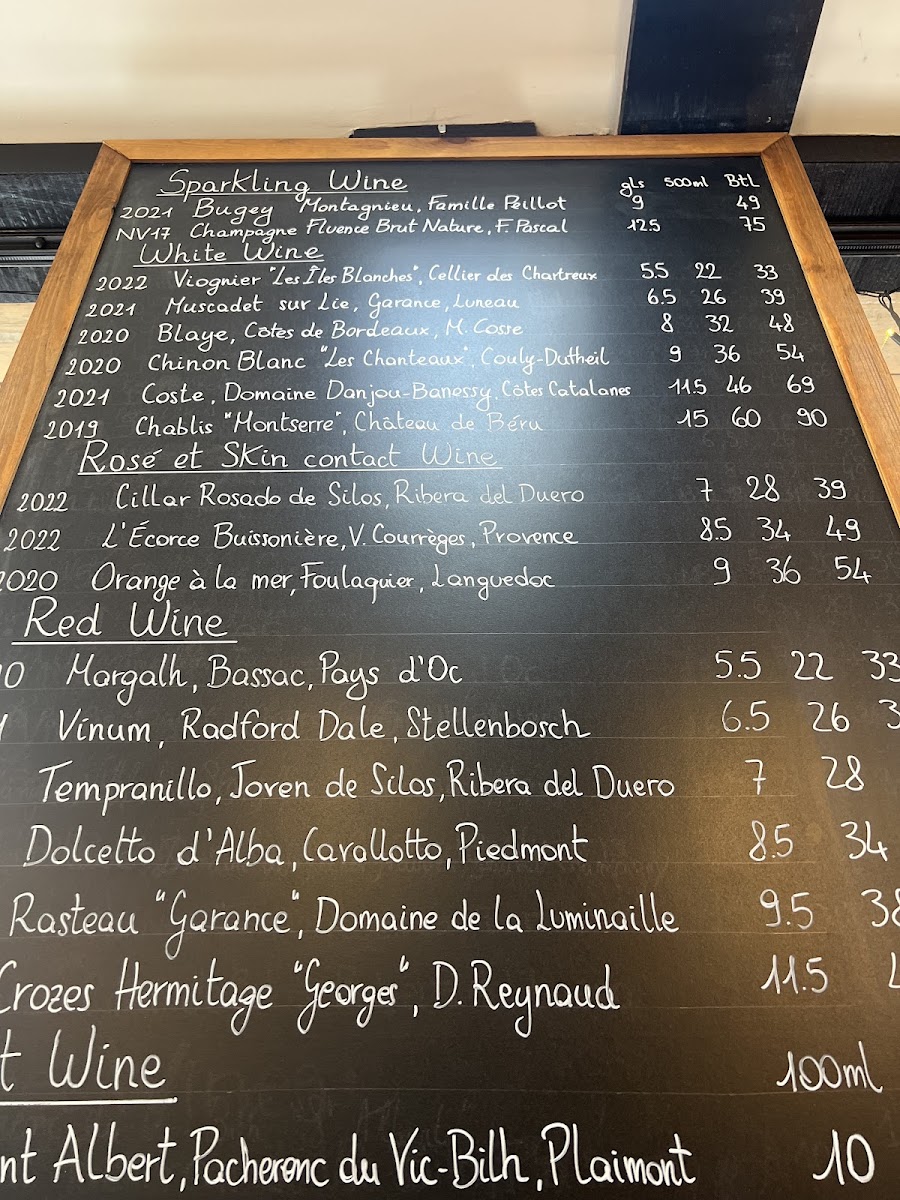 Sparkling Wine gls 500ml Btl
2021 Bugey Montagnieu, Famille Peillot 9 49
NV17 Champagne Fluence Brut Nature, F. Pascal 12.5 75
White Wine
2022 Viognier "Les Îles Blanches", Cellier des Chartreux 5.5 22 33
2021 Muscadet sur Lie, Garance, Luneau 6.5 26 39
2020 Blaye, Côtes de Bordeaux, M. Cosse 8 32 48
2020 Chinon Blanc "Les Chanteaux", Couly-Dutheil 9 36 54
2021 Coste, Domaine Danjou-Banessy, Côtes Catalanes 11.5 46 69
2019 Chablis "Montserre", Château de Béru 15 60 90
Rosé et Skin contact Wine
2022 Cillar Rosado de Silos, Ribera del Duero 7 28 39
2022 L'Écorce Buissonière, V. Courrèges, Provence 8.5 34 49
2020 Orange à la mer, Foulaquier, Languedoc 9 36 54
Red Wine
0 Margalh, Bassac, Pays d'Oc 5.5 22 33
Vinum, Radford Dale, Stellenbosch 6.5 26 3
Tempranillo, Joven de Silos, Ribera del Duero 7 28
Dolcetto d'Alba, Cavallotto, Piedmont 8.5 34
Rasteau "Garance", Domaine de la Luminaille 9.5 38
Crozes Hermitage "Georges", D. Reynaud 11.5
t Wine 100ml
nt Albert, Pacherenc du Vic-Bilh, Plaimont 10